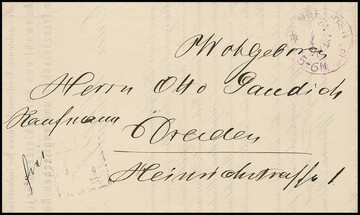 Wohlgeboren
Herrn Otto Paudich
Kaufmann
Dresden
Heinrichstrasse 1
5-6N